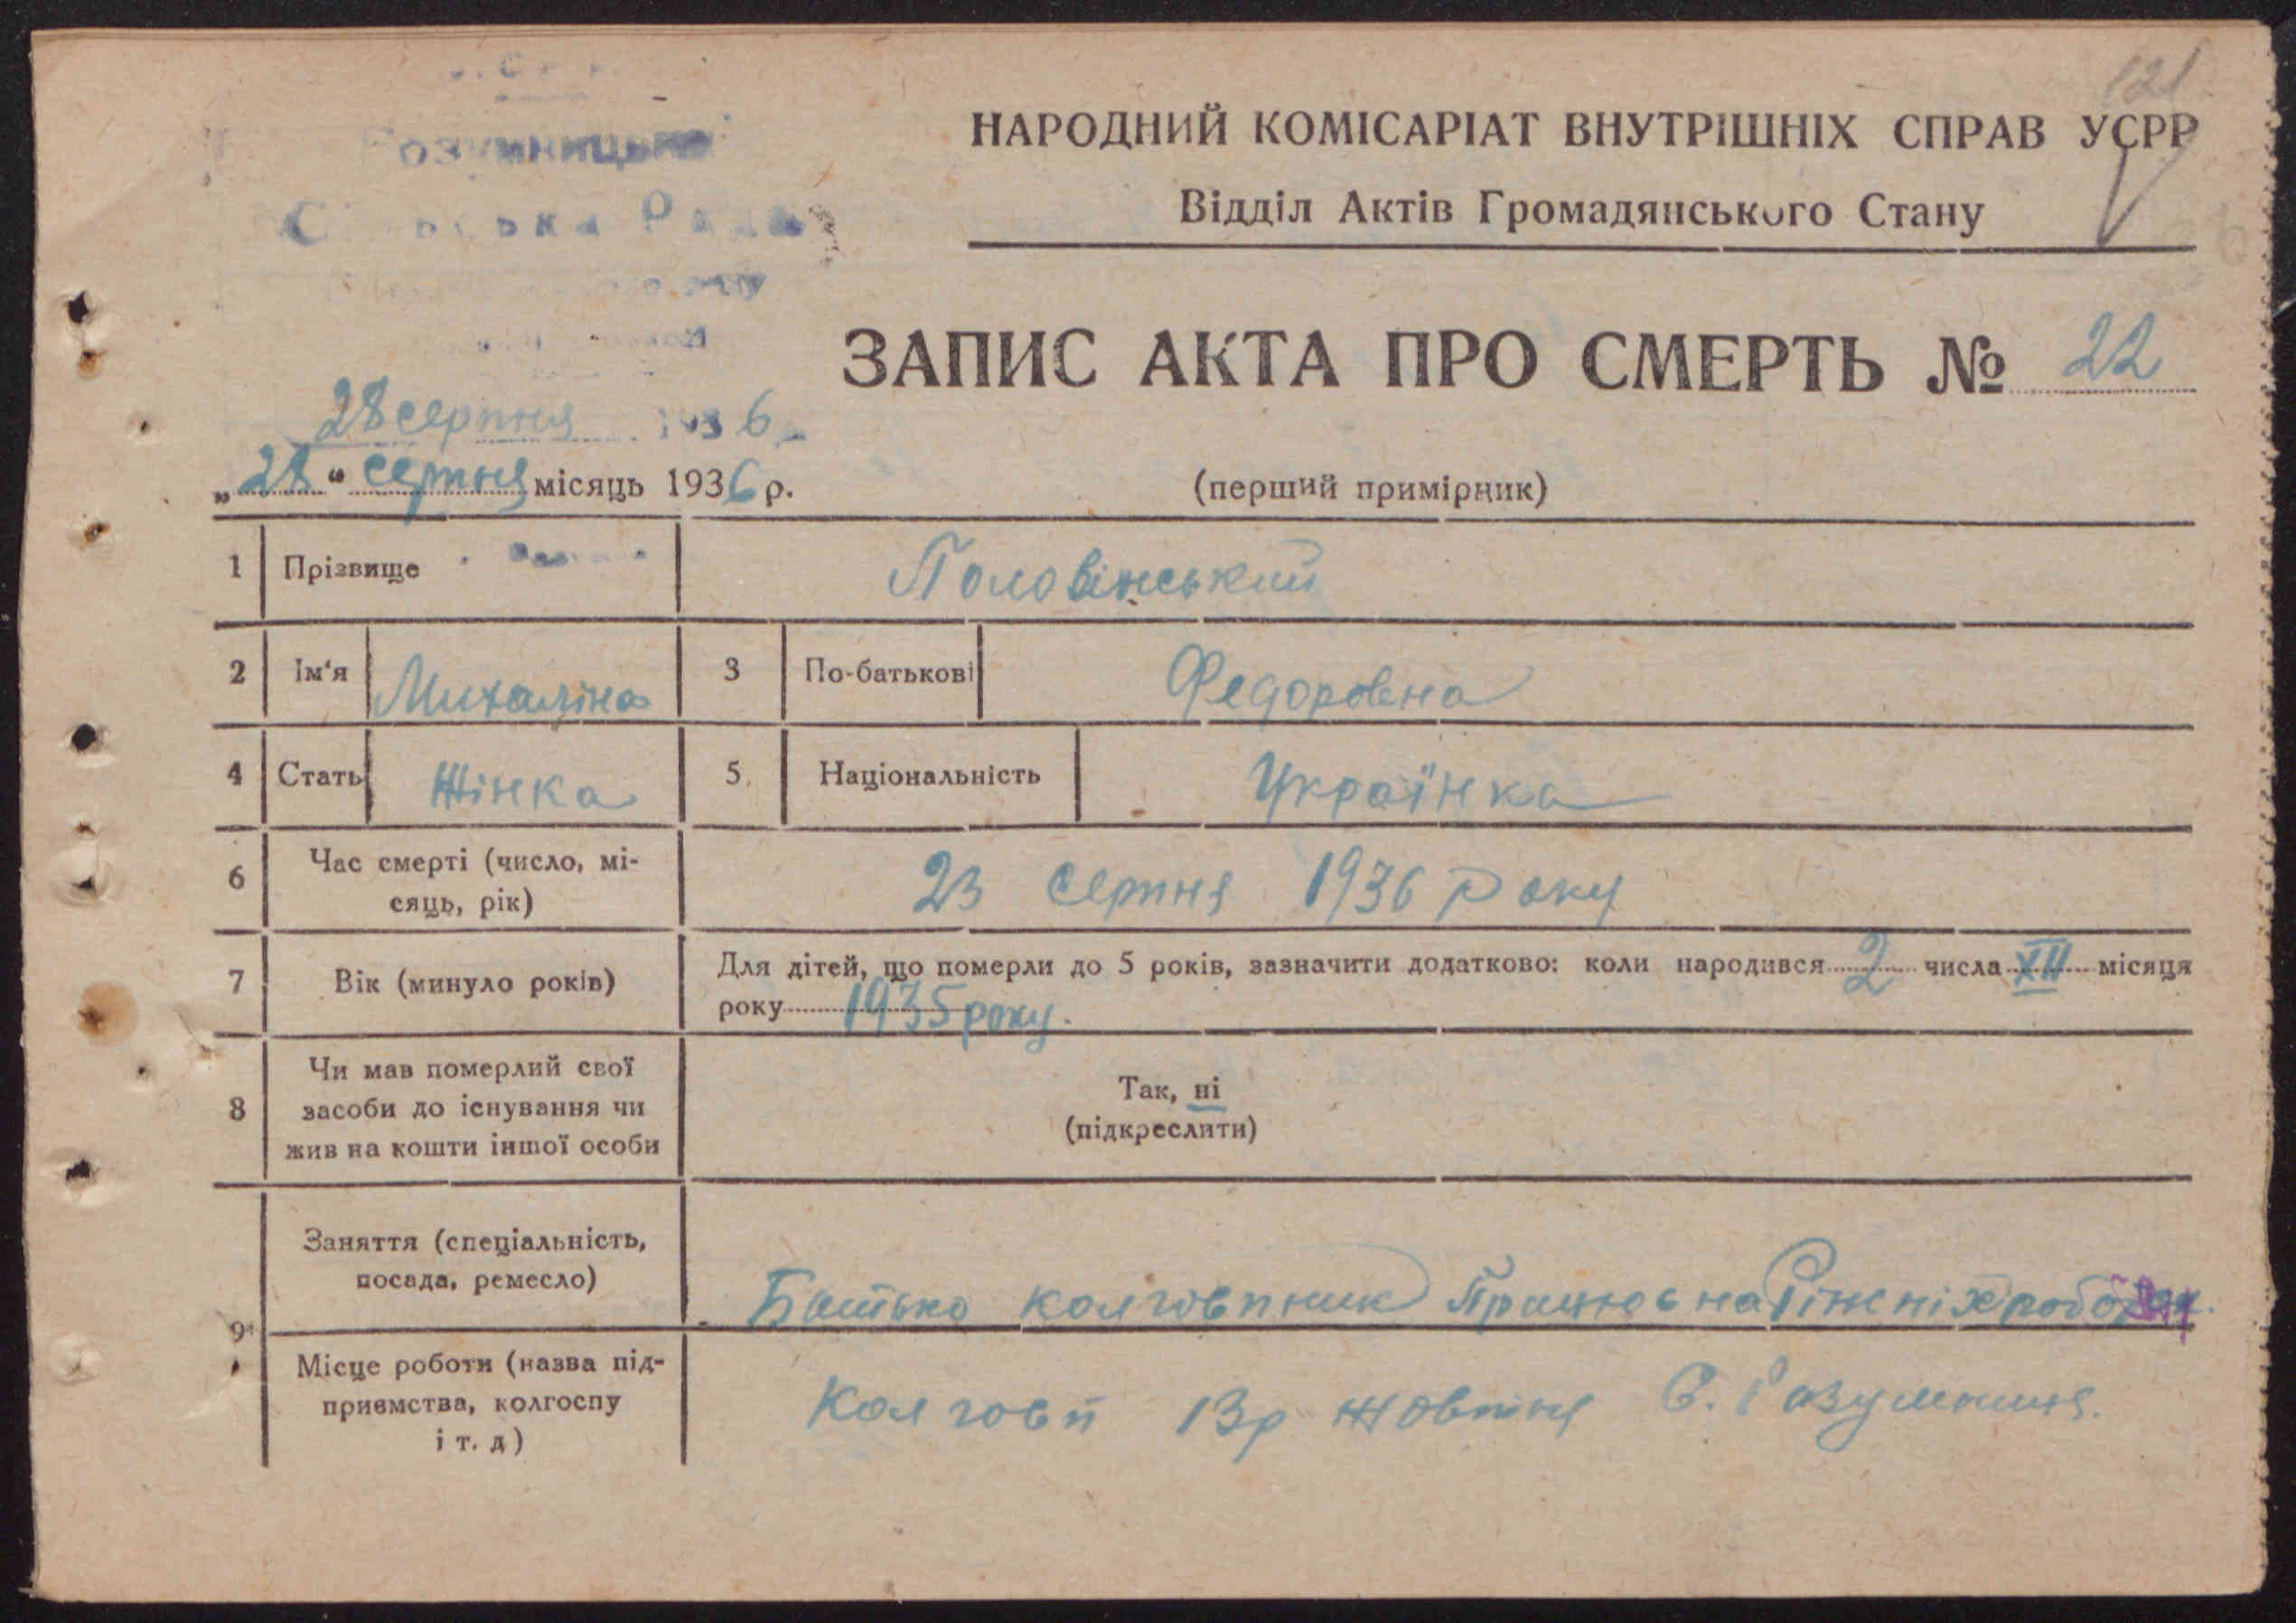 121
НАРОДНИЙ КОМІСАРІАТ ВНУТРІШНІХ СПРАВ УСРР
Відділ Актів Громадянського Стану
Рада
ЗАПИС АКТА ПРО СМЕРТЬ № 22
28 серпня 1936
„28“ серпня місяць 1936 р.
(перший примірник)
1 Прізвище Половінський
2 Ім'я Михаліна 3 По-батькові Федоровна
4 Стать Жінка 5. Національність Українка
6 Час смерті (число, мі-
сяць, рік) 23 серпня 1936 Року
7 Вік (минуло років) Для дітей, що померли до 5 років, зазначити додатково: коли народився 2 числа XII місяця
року 1935 року.
8 Чи мав померлий свої
засоби до існування чи
жив на кошти іншої особи
Так, ні
(підкреслити)
9 Заняття (спеціальність,
посада, ремесло)
Батько колговпник Працює на Ріжніх роботах.
Місце роботи (назва під-
приємства, колгоспу
і т. д)
Колговп 13р Жовтня С. Разумниця.